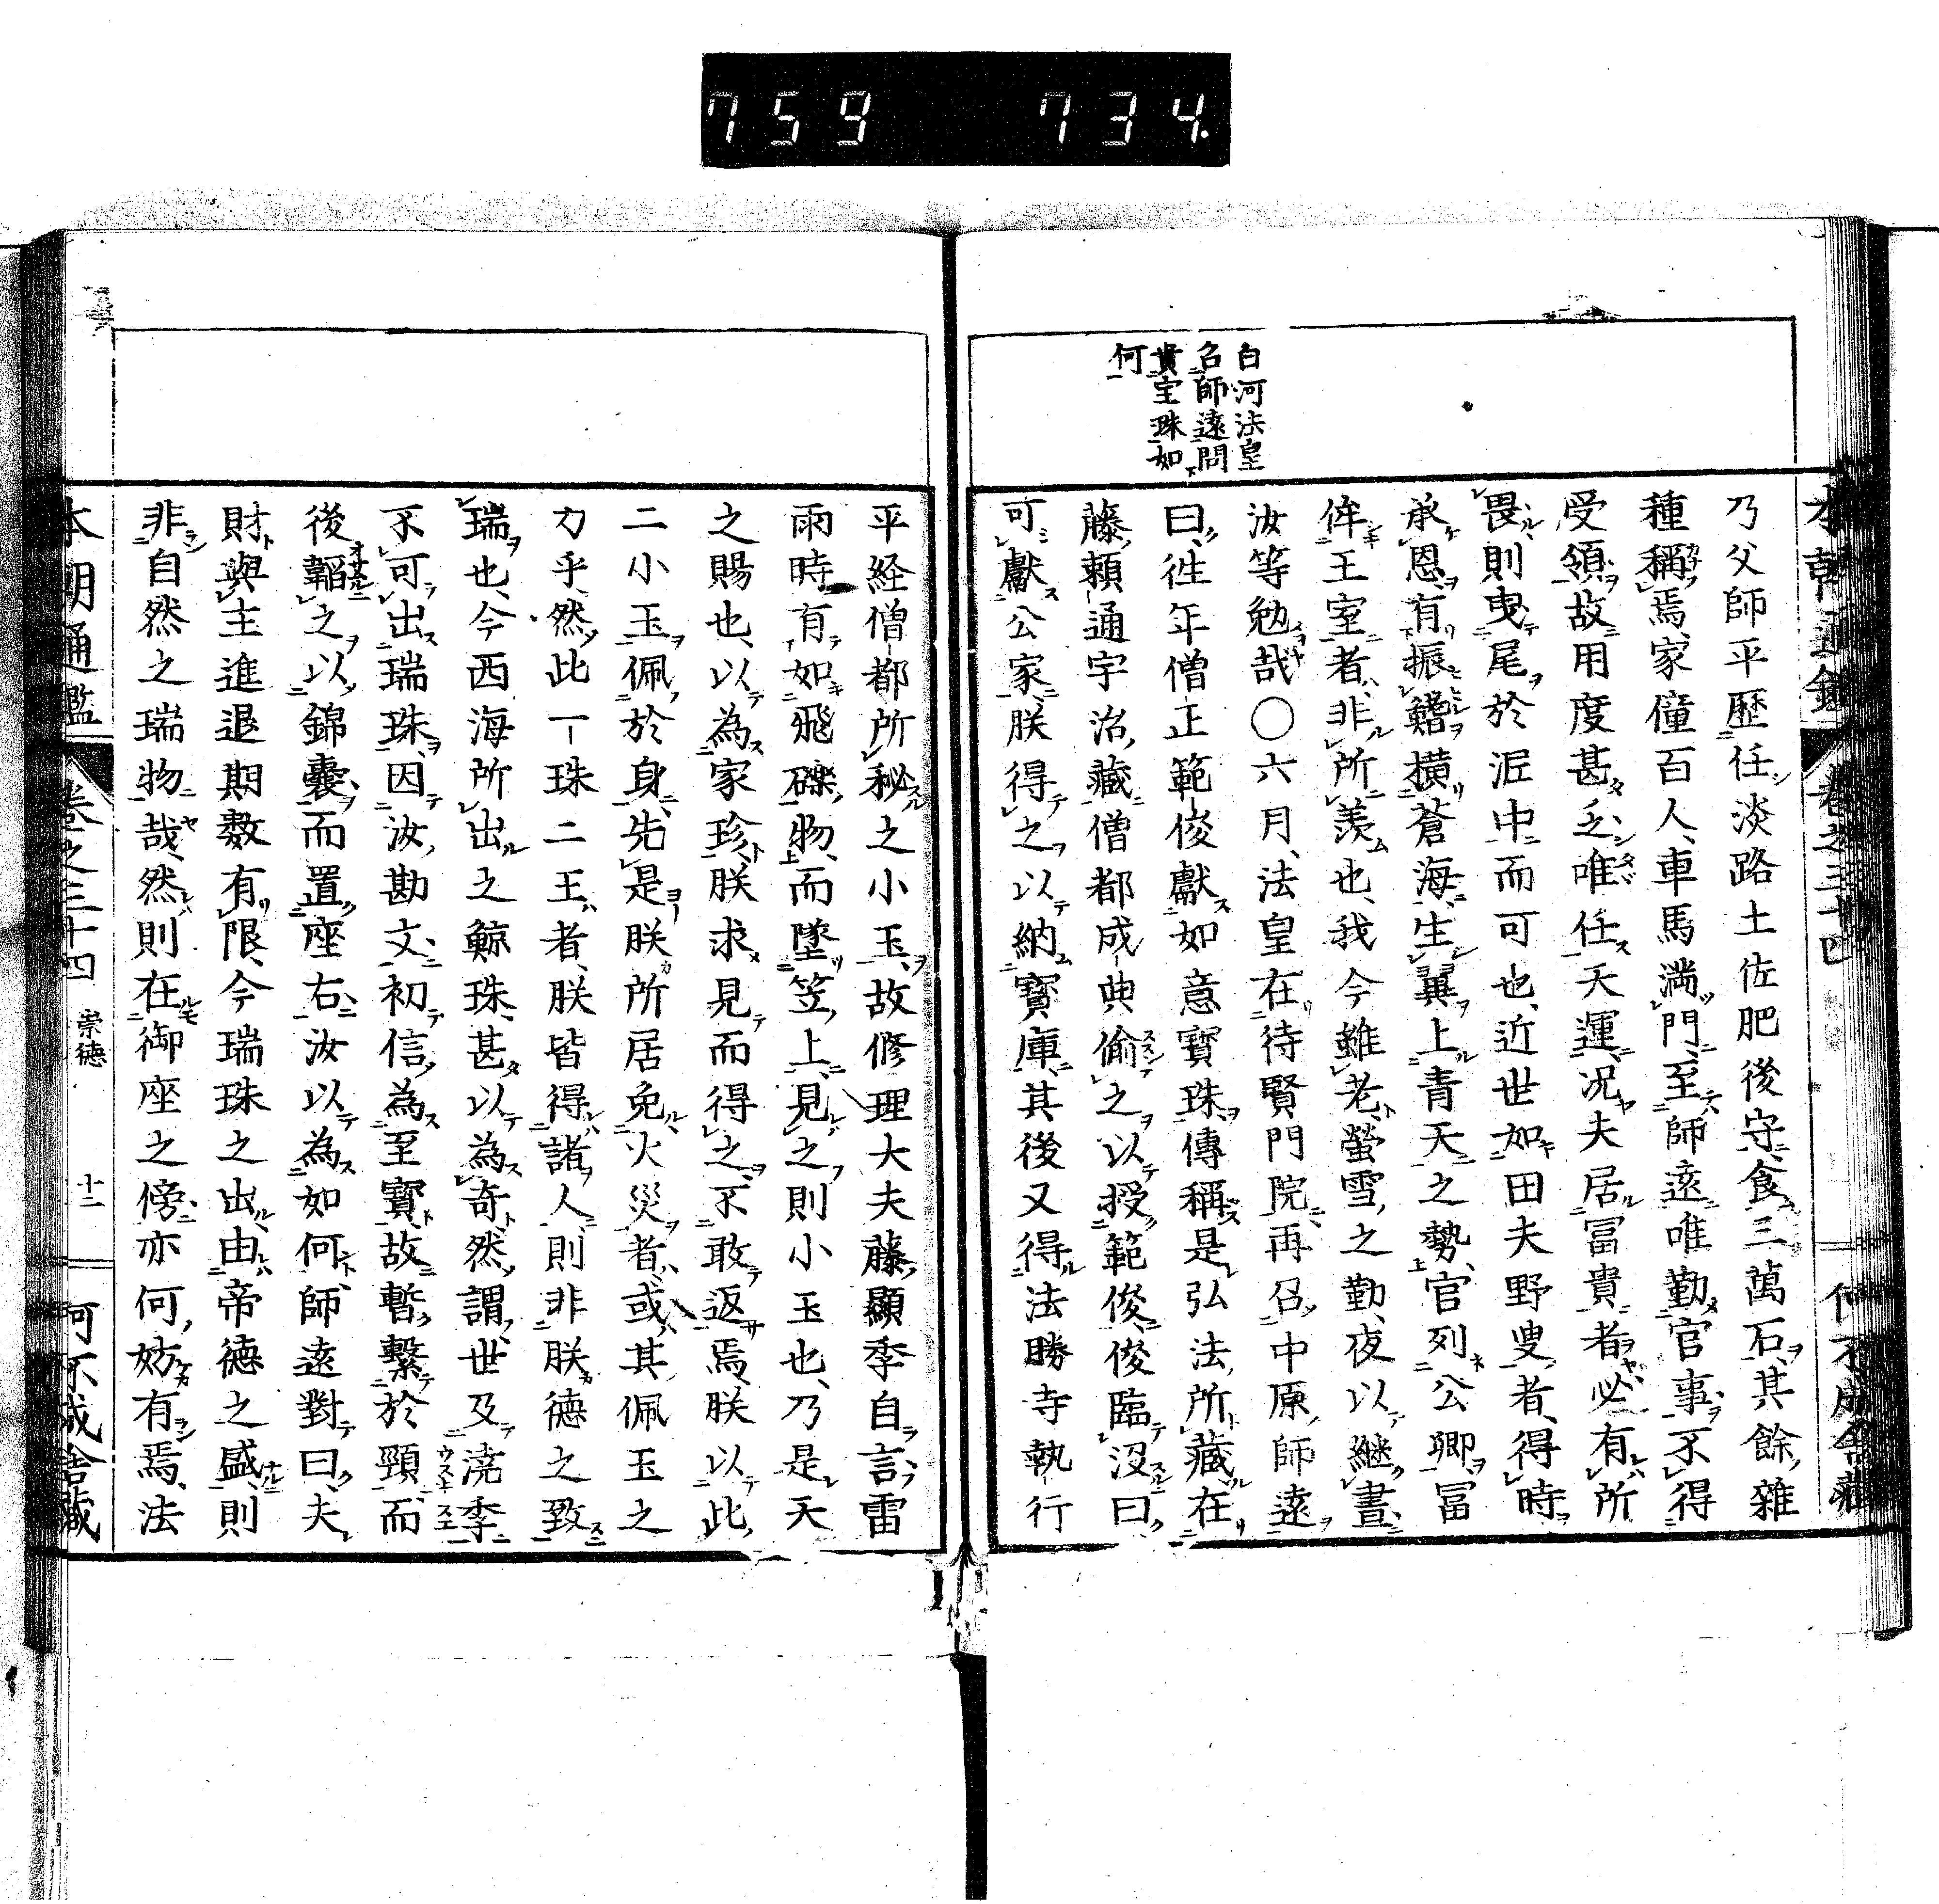 759 734.
白河法皇
召師遠問
貴宝珠如
何
乃父師平歷任淡路土佐肥後守食三萬石其餘雜
種稱焉家僮百人車馬満門至師遠唯勤官事不得
受領故用度甚乏唯任天運况夫居冨貴者必有所
畏則曳尾於泥中而可也近世如田夫野叟者得時
承恩有振鰭橫蒼海生翼上青天之勢官列公卿冨
侔王室者非所羨也我今雖老螢雪之勤夜以継晝
汝等勉哉〇六月法皇在待賢門院再召中原師遠
曰徃年僧正範俊獻如意寶珠傳稱是弘法所藏在
藤頼通宇治藏僧都成典偷之以授範俊俊臨没曰
可獻公家朕得之以納寶庫其後又得法勝寺執行
平経僧都所秘之小玉故修理大夫藤顯季自言雷
雨時有如飛礫物而墜笠上見之則小玉也乃是天
之賜也以為家珍朕求見而得之不敢返焉朕以此
二小玉佩於身先是朕所居免火災者或其佩玉之
力乎然此一珠二玉者朕皆得諸人則非朕德之致
瑞也今西海所出之鯨珠甚以為奇然謂世及澆季
不可出瑞珠因汝勘文初信為至寶故暫繫於頸而
後韜之以錦囊而置座右汝以為如何師遠對曰夫
財與主進退期数有限今瑞珠之出由帝德之盛則
非自然之瑞物哉然則在御座之傍亦何妨有焉法
本朝通鑑
卷之三十四
崇德
十二
何不成舎藏